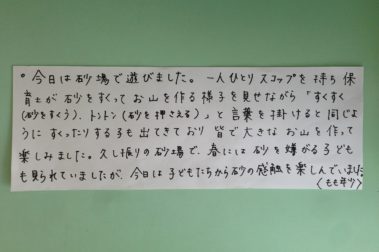 。今日は砂場で遊びました。一人ひとりスコップを持ち保
育士が砂をすくってお山を作る様子を見せながら「すくすく
(砂をすくう)、トントン(砂を押さえる)」と言葉を掛けると同じよ
うにすったりする子も出てきており皆で大きなお山を作って
楽しみました。久し振りの砂場で、春には砂を嫌がる子ども
も見られていましたが、今日は子どもたちから砂の感触を楽しんでいました
(もも年少)